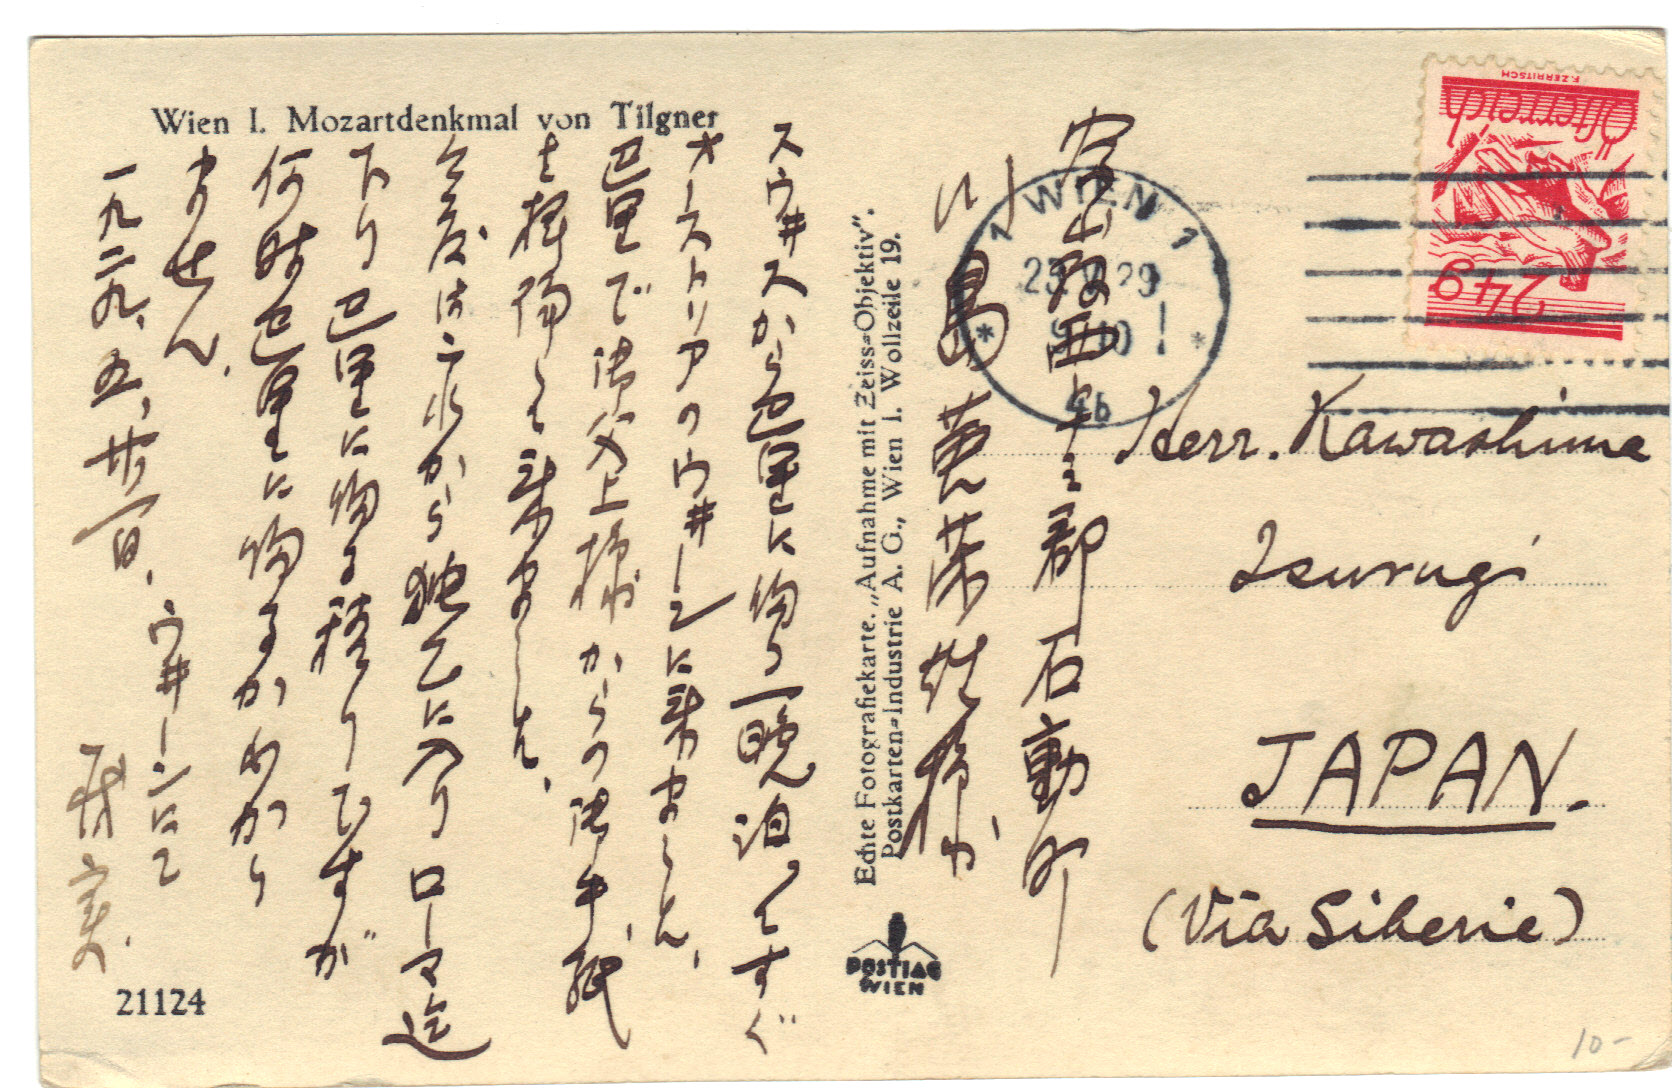 Wien I. Mozartdenkmal von Tilgner
スウ井スから巴里に帰り一晩泊つてすぐ
オーストリアのウ井ーンに来ました、
巴里で御父上様からの御手紙
を拝得して来ました、
今度は之れから独乙に入りローマ迄
下り巴里に帰る積りですが
何時巴里に帰るかわかり
ません、
一九二九、五、廿一日、ウ井ーンにて
Echte Fotografiekarte. „Aufnahme mit Zeiss-Objektiv".
Postkarten-Industrie A. G., Wien I. Wollzeile 19.
POSTIAG
WIEN
21124
富山縣西中郡石動町
川島
F. ZERRITSCH
Österreich
24g
1 WIEN 1
29
4b
Herr. Kawashima
Isurugi
JAPAN.
(Via Siberie)
10-